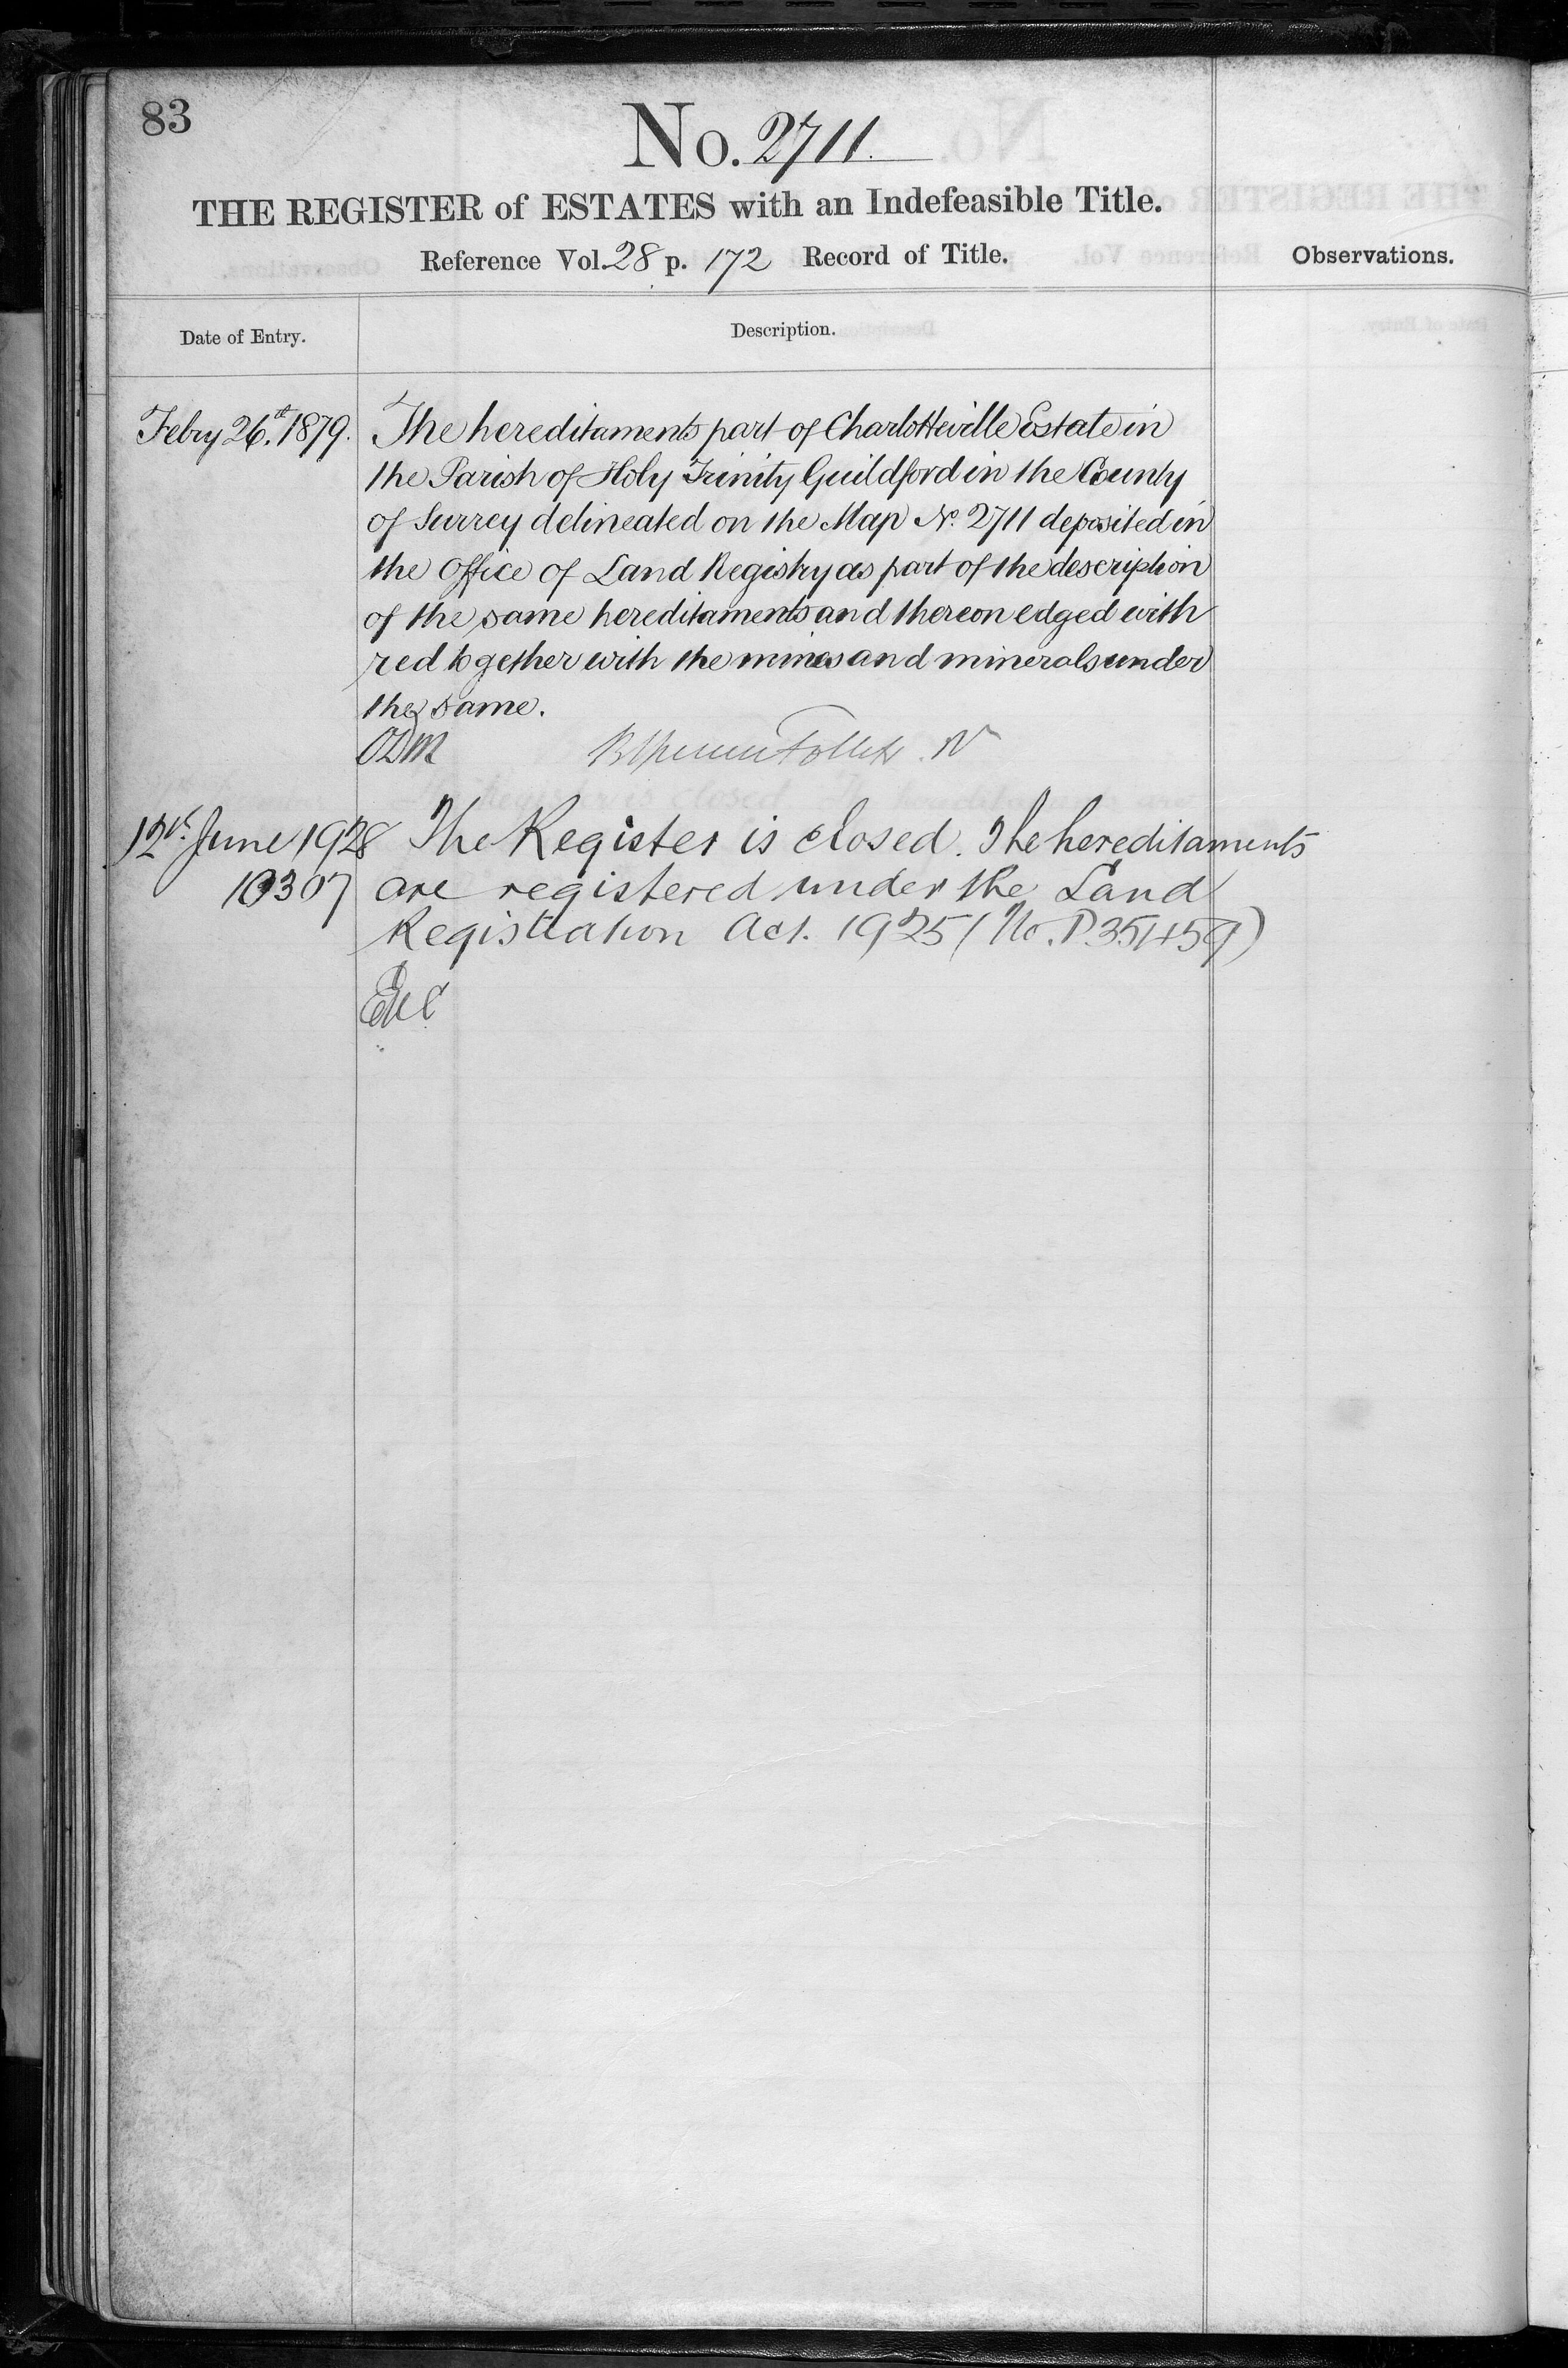 83
No. 2711.
THE REGISTER of ESTATES with an Indefeasible Title.
Reference Vol. 28 p. 172 Record of Title.
Observations.
Date of Entry.
Description.
Febry 26th. 1879.
The hereditaments part of Charlotteville Estate in
the Parish of Holy Trinity Guildford in the County
of Surrey delineated on the Map No. 2711 deposited in
the Office of Land Registry as part of the description
of the same hereditaments and thereon edged with
red together with the mines and minerals under
the same.
12th June 1928 The Register is closed. The hereditaments
10307 are registered under the Land
Registration Act. 1925 (No. P.351459)